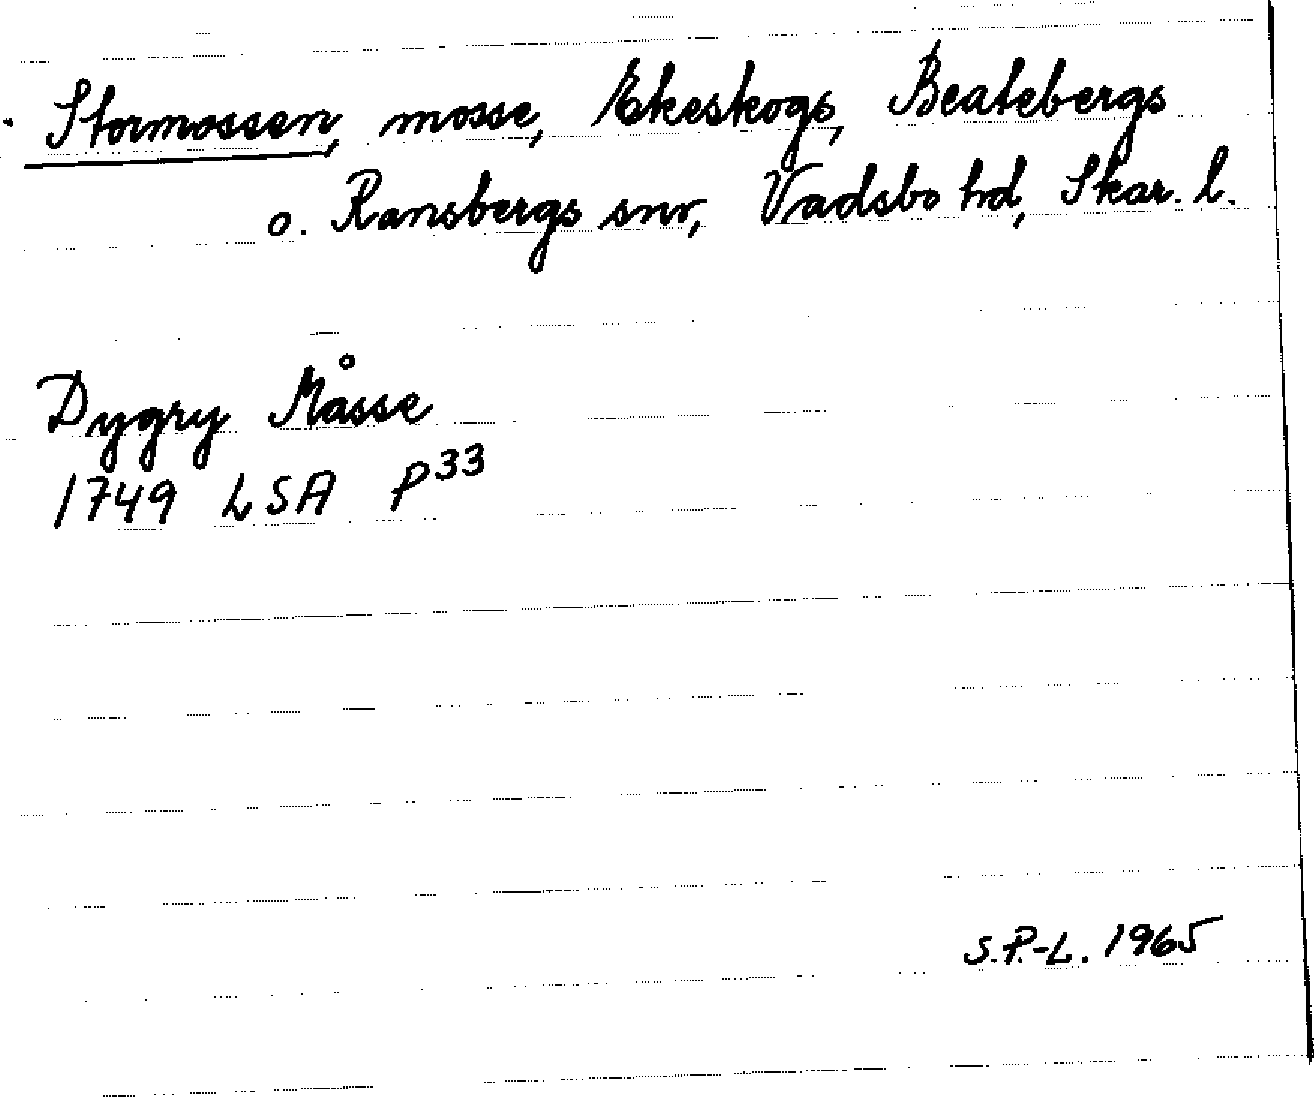 Stormossen, mosse, Ekeskogs, Beatebergs
o. Ransbergs snr, Vadsbo hd, Skar. l.
Dygry Måsse
1749 LSA P33
S.P.-L. 1965